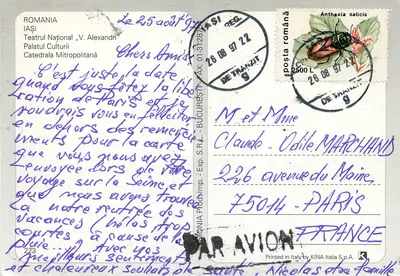 ROMANIA
IAȘI
Teatrul Național „V. Alexandri
Palatul Culturii
Catedrala Mitropolitană
Le 25 août 97
Chers Amis
C'est juste la date
quand vous fêtez la libé
ration de Paris et je
voudrais vous en féliciter
en dehors des remercie
ments pour la carte
que vous nous avez
envoyée lors de votre
voyage sur la Seine et
que nous avons trouvée
à notre rentrée des
vacances, hélas trop
courtes à cause de la
pluie... avec nos
meilleurs sentiments
et chaleureux souhaits de santé, Nicolas et sa famille
IAȘI
REG.
26 08 97 22
DE TRANZIT
9
26 08 97 22
DE TRANZIT
9
Anthaxia salicis
poșta română
2500 L
M et Mme
Claude - Odile MARCHAND
226 avenue du Maine
75014 - PARIS
FRANCE
PAR AVION
Printed in Italy by KINA Italia S.p.A.